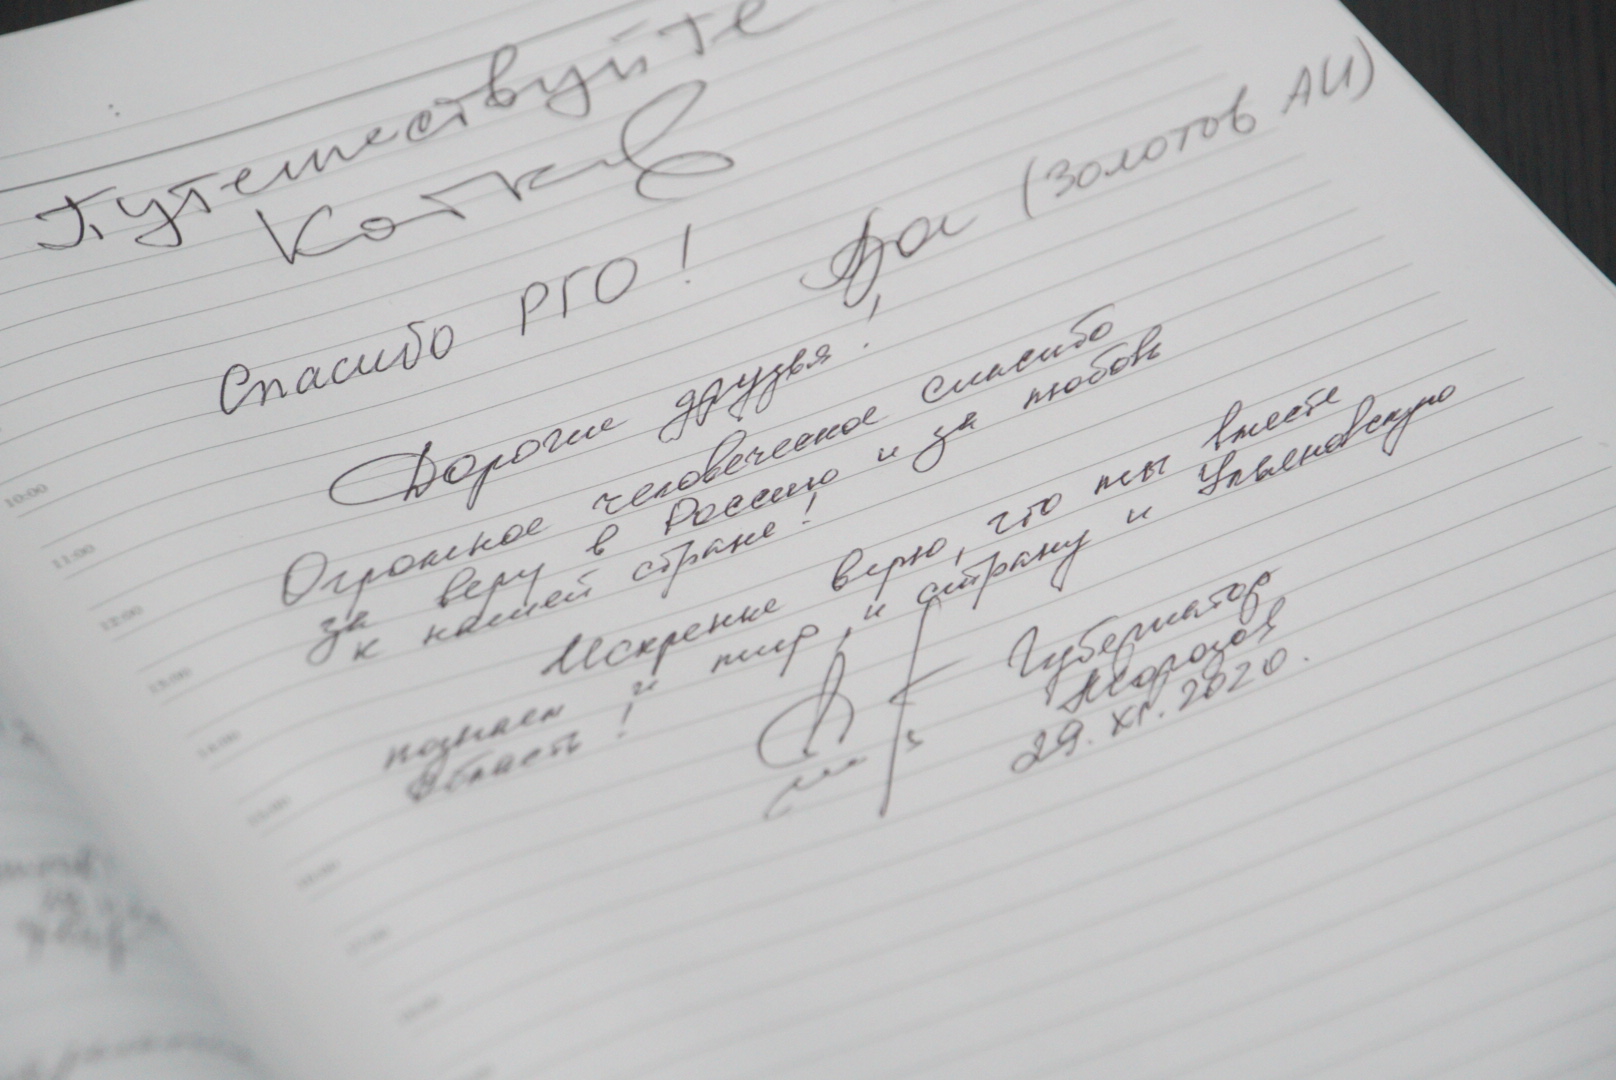 Путешествуйте
Спасибо РГО!
(Золотов АИ)
Дорогие друзья!
Огромное человеческое спасибо
за веру в Россию и за любовь
к нашей стране!
Искренне верю, что мы вместе
познаем и мир, и страну и Ульяновскую
область!
Губернатор
Морозов
29.XI.2020.
10:00
11:00
12:00
13:00